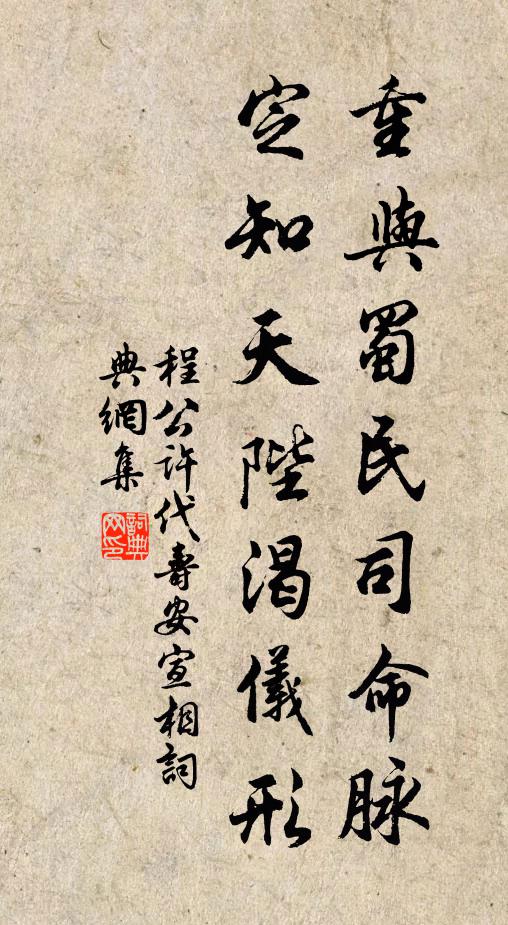 重與蜀民司命脉
定知天陛渴儀形
程公許代壽安宣相詞
典網集
詞典
网印